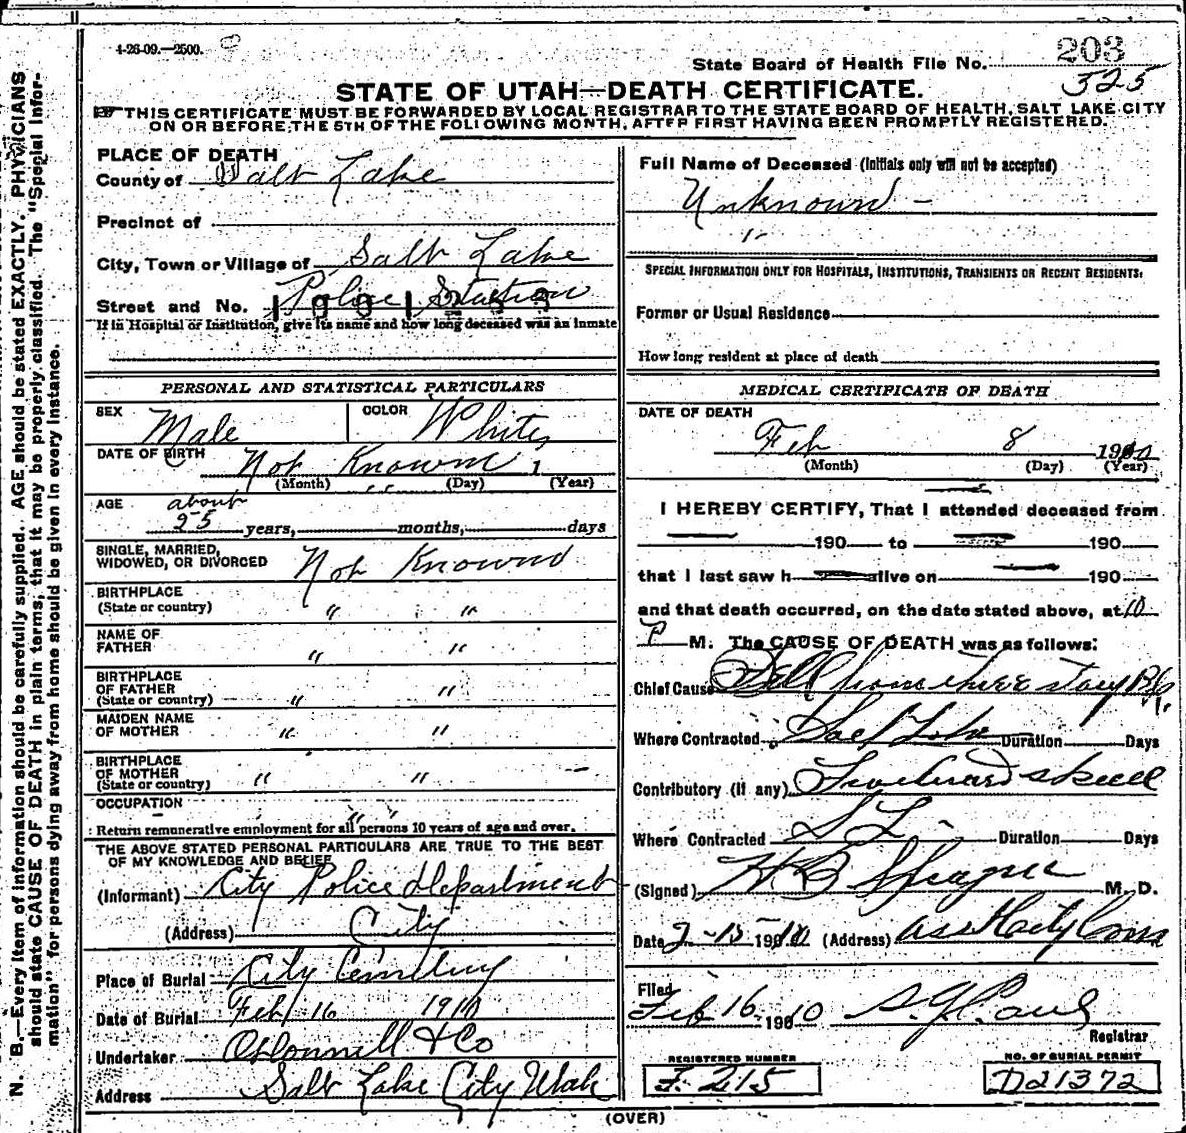 4-26-09.—2500.
State Board of Health File No. 203
325
STATE OF UTAH—DEATH CERTIFICATE.
THIS CERTIFICATE MUST BE FORWARDED BY LOCAL REGISTRAR TO THE STATE BOARD OF HEALTH, SALT LAKE CITY
ON OR BEFORE THE 5TH OF THE FOLLOWING MONTH, AFTER FIRST HAVING BEEN PROMPTLY REGISTERED.
N. B.—Every item of information should be carefully supplied. AGE should be stated EXACTLY. PHYSICIANS
should state CAUSE OF DEATH in plain terms, that it may be properly classified. The "Special Infor-
mation" for persons dying away from home should be given in every instance.
PLACE OF DEATH
County of Salt Lake
Precinct of
City, Town or Village of Salt Lake
Street and No. Police Station
If in Hospital or Institution, give its name and how long deceased was an inmate
PERSONAL AND STATISTICAL PARTICULARS
SEX Male COLOR White
DATE OF BIRTH Not Known 1
(Month) (Day) (Year)
AGE about
25 years, months, days
SINGLE, MARRIED,
WIDOWED, OR DIVORCED Not Known
BIRTHPLACE
(State or country) " "
NAME OF
FATHER " "
BIRTHPLACE
OF FATHER
(State or country) " "
MAIDEN NAME
OF MOTHER " "
BIRTHPLACE
OF MOTHER
(State or country) " "
OCCUPATION " "
Return remunerative employment for all persons 10 years of age and over.
THE ABOVE STATED PERSONAL PARTICULARS ARE TRUE TO THE BEST
OF MY KNOWLEDGE AND BELIEF
(Informant) City Police department
(Address) City
Place of Burial City Cemetery
Date of Burial Feb 16 1910
Undertaker O'Donnell & Co
Address Salt Lake City Utah
Full Name of Deceased (Initials only will not be accepted)
Unknown -
"
SPECIAL INFORMATION ONLY FOR HOSPITALS, INSTITUTIONS, TRANSIENTS OR RECENT RESIDENTS:
Former or Usual Residence
How long resident at place of death
MEDICAL CERTIFICATE OF DEATH
DATE OF DEATH
Feb 8 1910
(Month) (Day) (Year)
I HEREBY CERTIFY, That I attended deceased from
190 to 190
that I last saw h alive on 190
and that death occurred, on the date stated above, at 10
P M. The CAUSE OF DEATH was as follows:
Chief Cause Fell from three story Bld
Where Contracted Salt Lake Duration Days
Contributory (if any) Fractured skull
Where Contracted S L Duration Days
(Signed) H B Sprague M. D.
Date 2-15 1910 (Address) asst City
Filed
Feb 16 1910 Registrar
REGISTERED NUMBER
F. 215
NO. OF BURIAL PERMIT
D21372
(OVER)